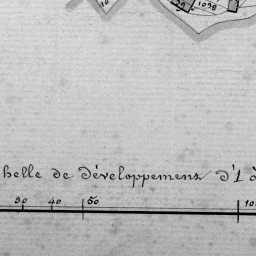 10 29 1098
helle de développemens d'1 à
30 40 50 10